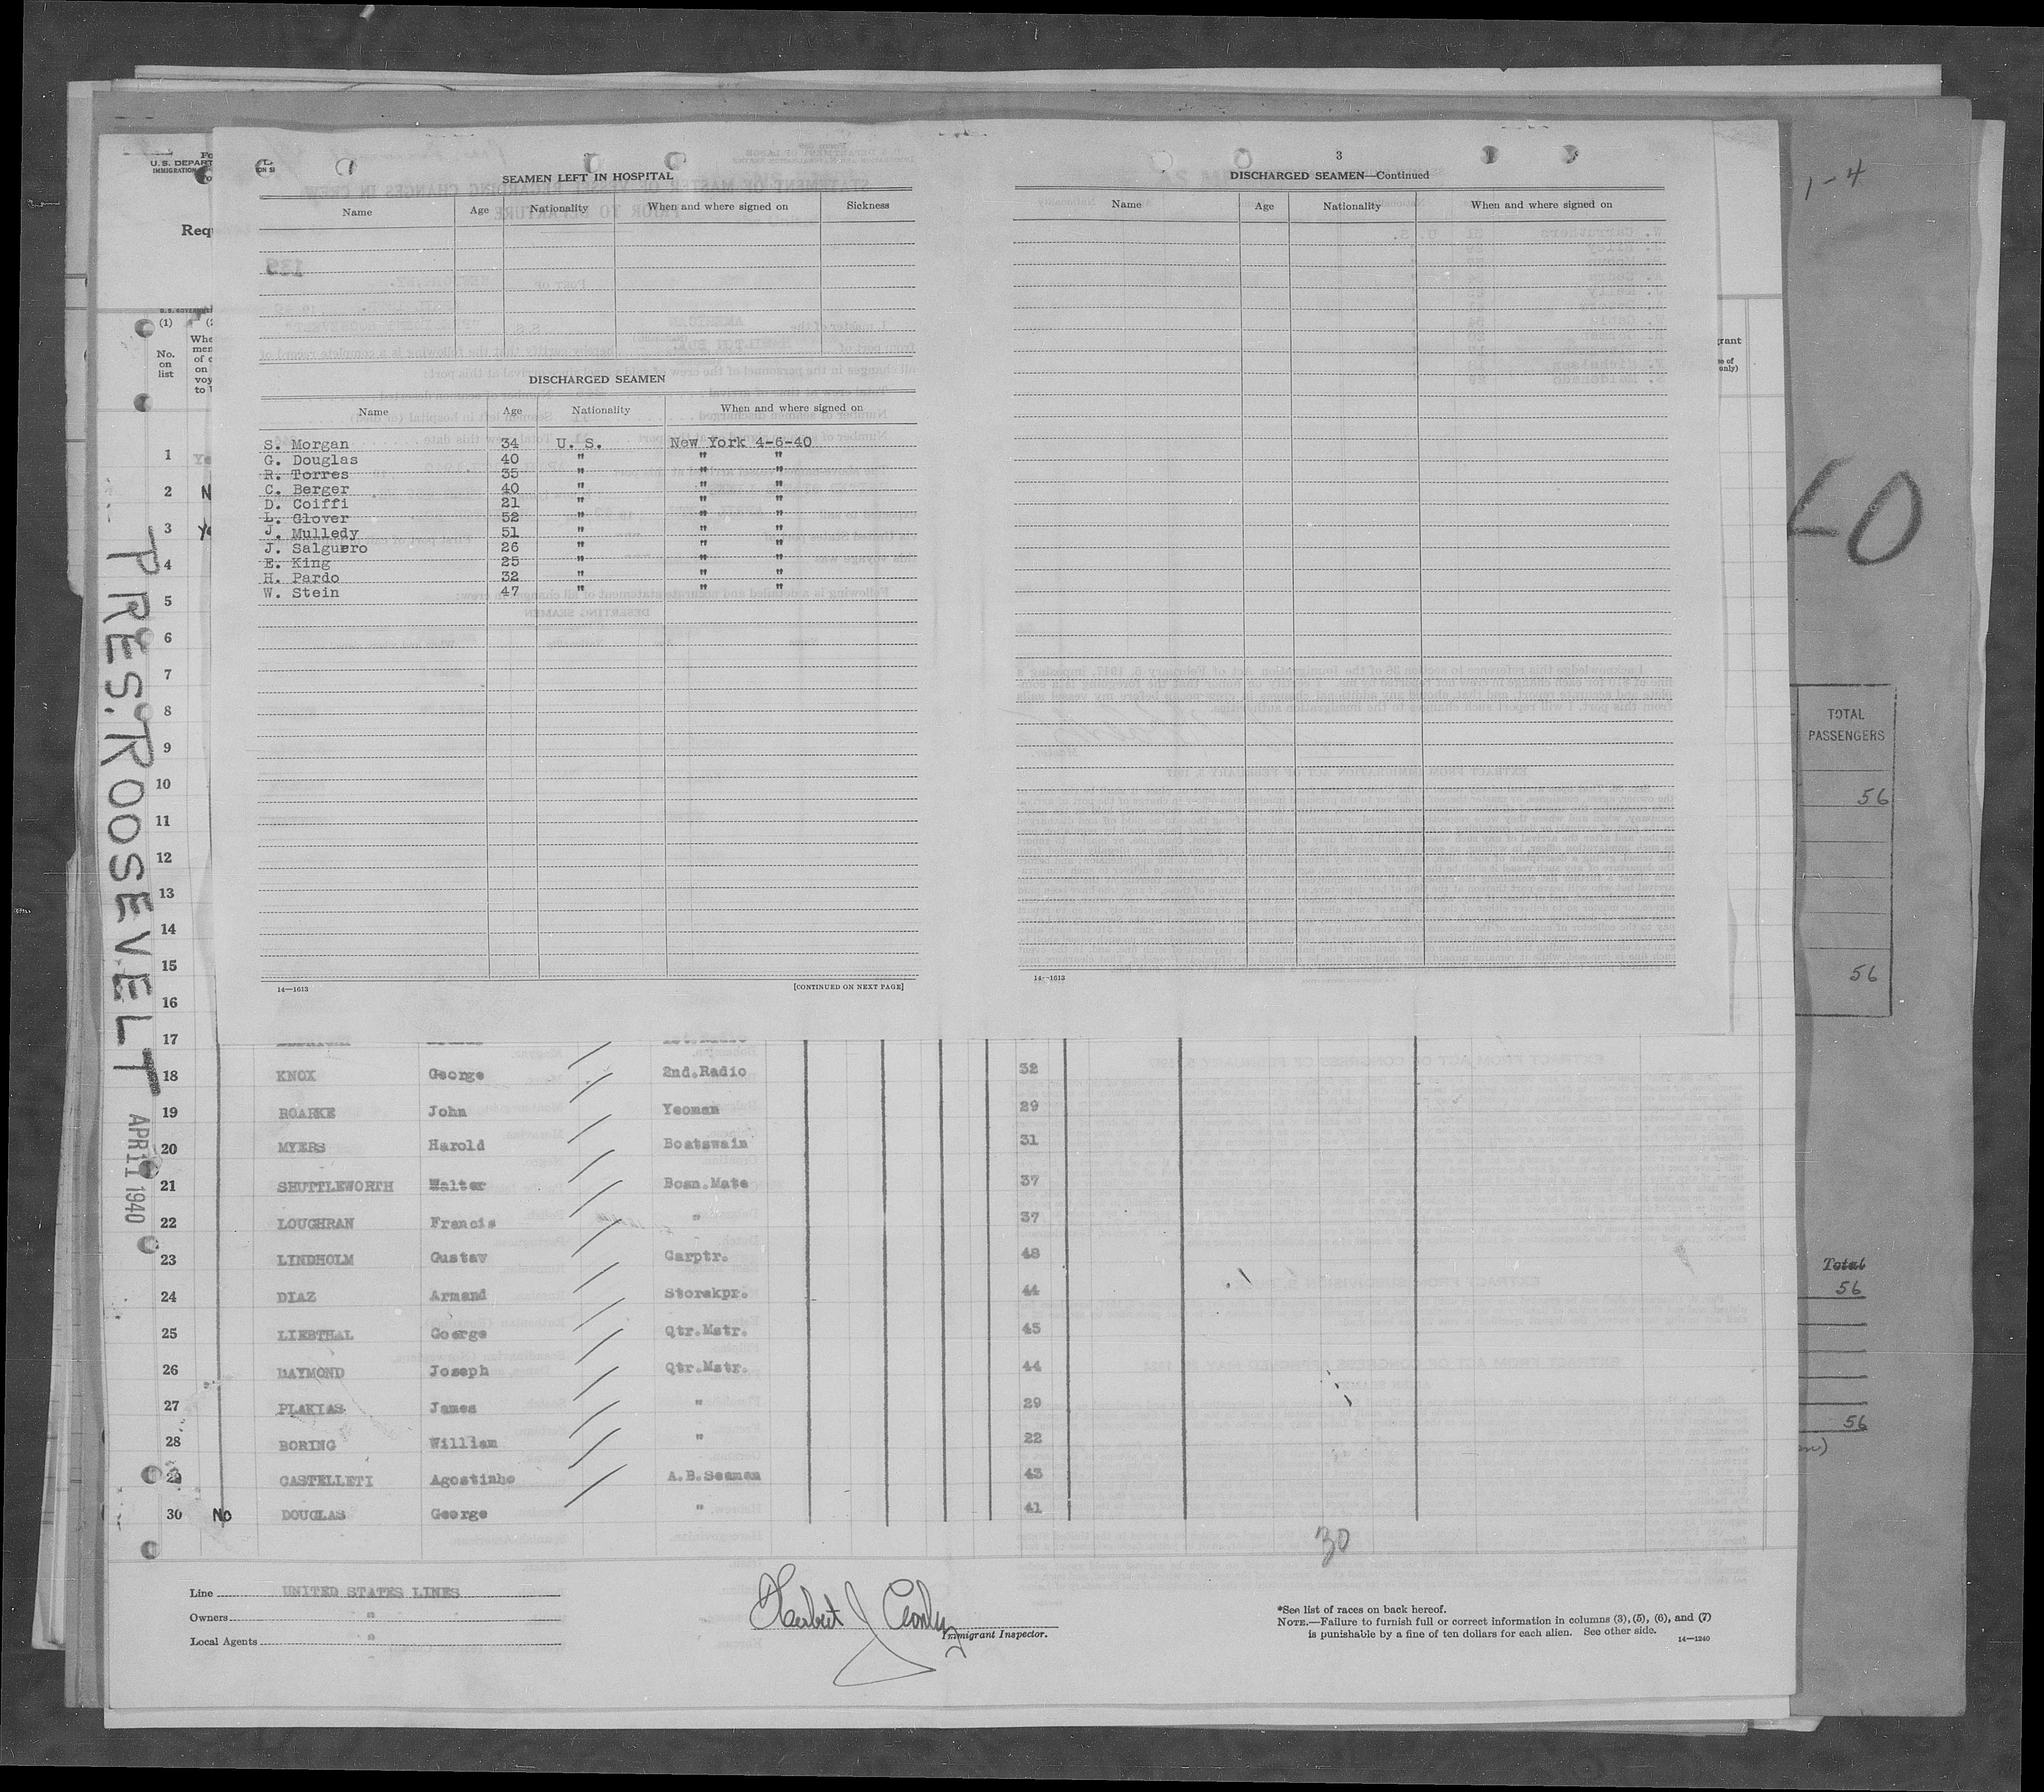 SEAMEN LEFT IN HOSPITAL
Name Age Nationality When and where signed on Sickness
DISCHARGED SEAMEN
Name Age Nationality When and where signed on
S. Morgan 34 U. S. New York 4-6-40
G. Douglas 40 " " "
R. Torres 35 " " "
C. Berger 40 " " "
D. Coiffi 21 " " "
L. Glover 52 " " "
J. Mulledy 51 " " "
J. Salguero 26 " " "
E. King 25 " " "
H. Pardo 32 " " "
W. Stein 47 " " "
14—1613 [CONTINUED ON NEXT PAGE]
3
DISCHARGED SEAMEN—Continued
Name Age Nationality When and where signed on
14—1613
U. S. DEPART
IMMIGRATION
Req
(1)
No.
on
list
1
2 N
3
4
5
6
7
8
9
10
11
12
13
14
15
16
17
18 KNOX George 2nd.Radio 32
19 ROARKE John Yeoman 29
20 MYERS Harold Boatswain 31
21 SHUTTLEWORTH Walter Bosn.Mate 37
22 LOUGHRAN Francis " 37
23 LINDHOLM Gustav Carptr. 48
24 DIAZ Armand Storekpr. 44
25 LIEBTHAL Goerge Qtr.Mstr. 45
26 DAYMOND Joseph Qtr.Mstr. 44
27 PLAKIAS James " 29
28 BORING William " 22
29 CASTELLETI Agostinho A.B.Seaman 43
30 No DOUGLAS George " 41
30
Line UNITED STATES LINES
Owners "
Local Agents "
Immigrant Inspector.
*See list of races on back hereof.
NOTE.—Failure to furnish full or correct information in columns (3), (5), (6), and (7)
is punishable by a fine of ten dollars for each alien. See other side.
14—1240
PRES. ROOSEVELT APR 11 1940
1-4
TOTAL
PASSENGERS
56
56
Total
56
56